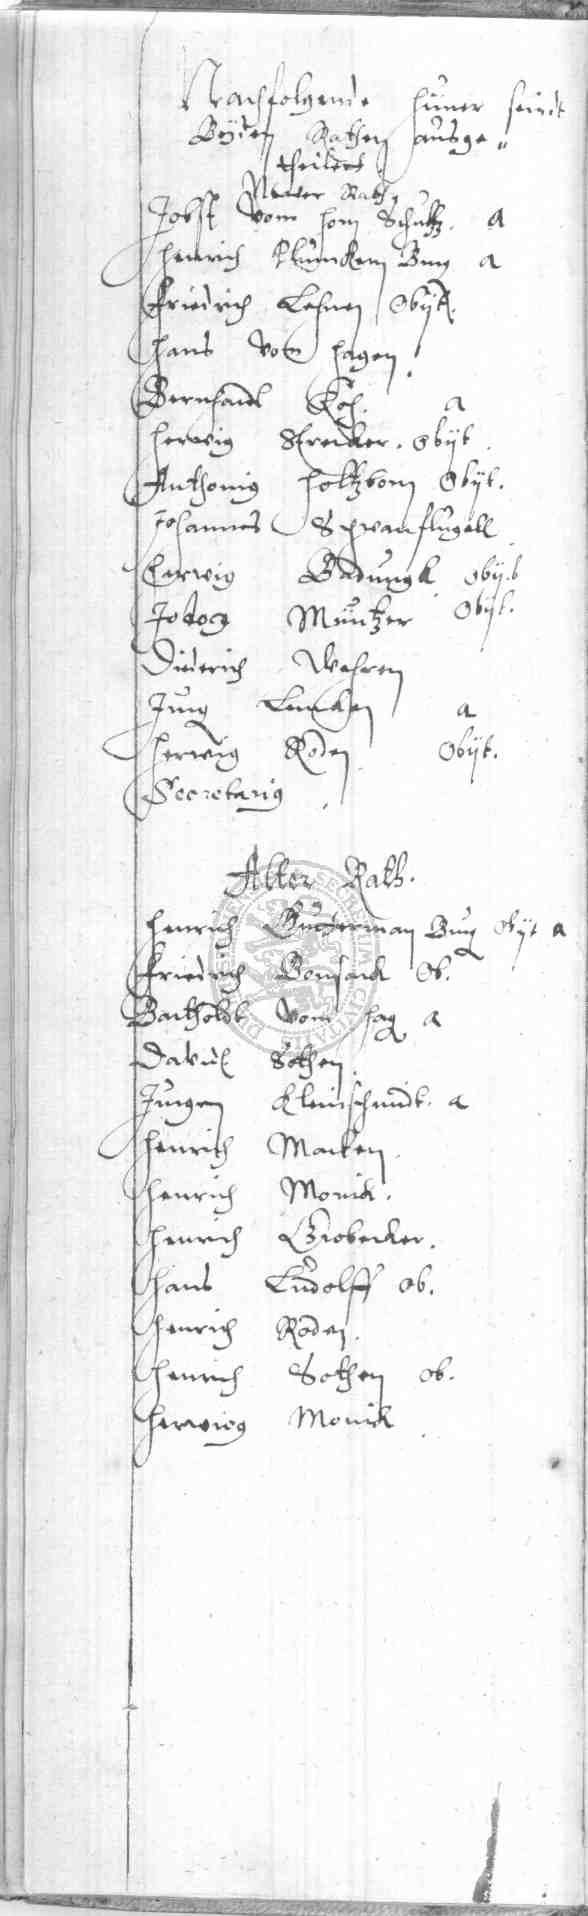 Nachfolgende Hüner seindt
Beyden Rathen ausge„
theilet
Newer Rath,
Jobst vom Hom Schultz. a
Henrich Klüncken Burg a
Friedrich Lehnen Obijt.
Hans von Hagen.
Bernhardt Koh. a
Herwig Strecker. Obijt.
Anthonig Holtzborn Obijt.
Johannes Schwanflugell
Herwig Badungk Obijt
Jodocg Müntzer Obijt.
Diderich Wehren
Jurg Lencken a
Herwig Roden Obijt.
Secretarig.
Alter Rath.
Henrich Gutterman Burg Obijt a
Friedrich Bonsack Ob.
Bartholdt vom Hag a
Davidt Sothen
Jurgen Kleinschmidt. a
Henrich Marken.
Henrich Monick.
Henrich Grobecker.
Hans Ludolff Ob.
Henrich Roden.
Henrich Sothen Ob.
Herwiog Monick